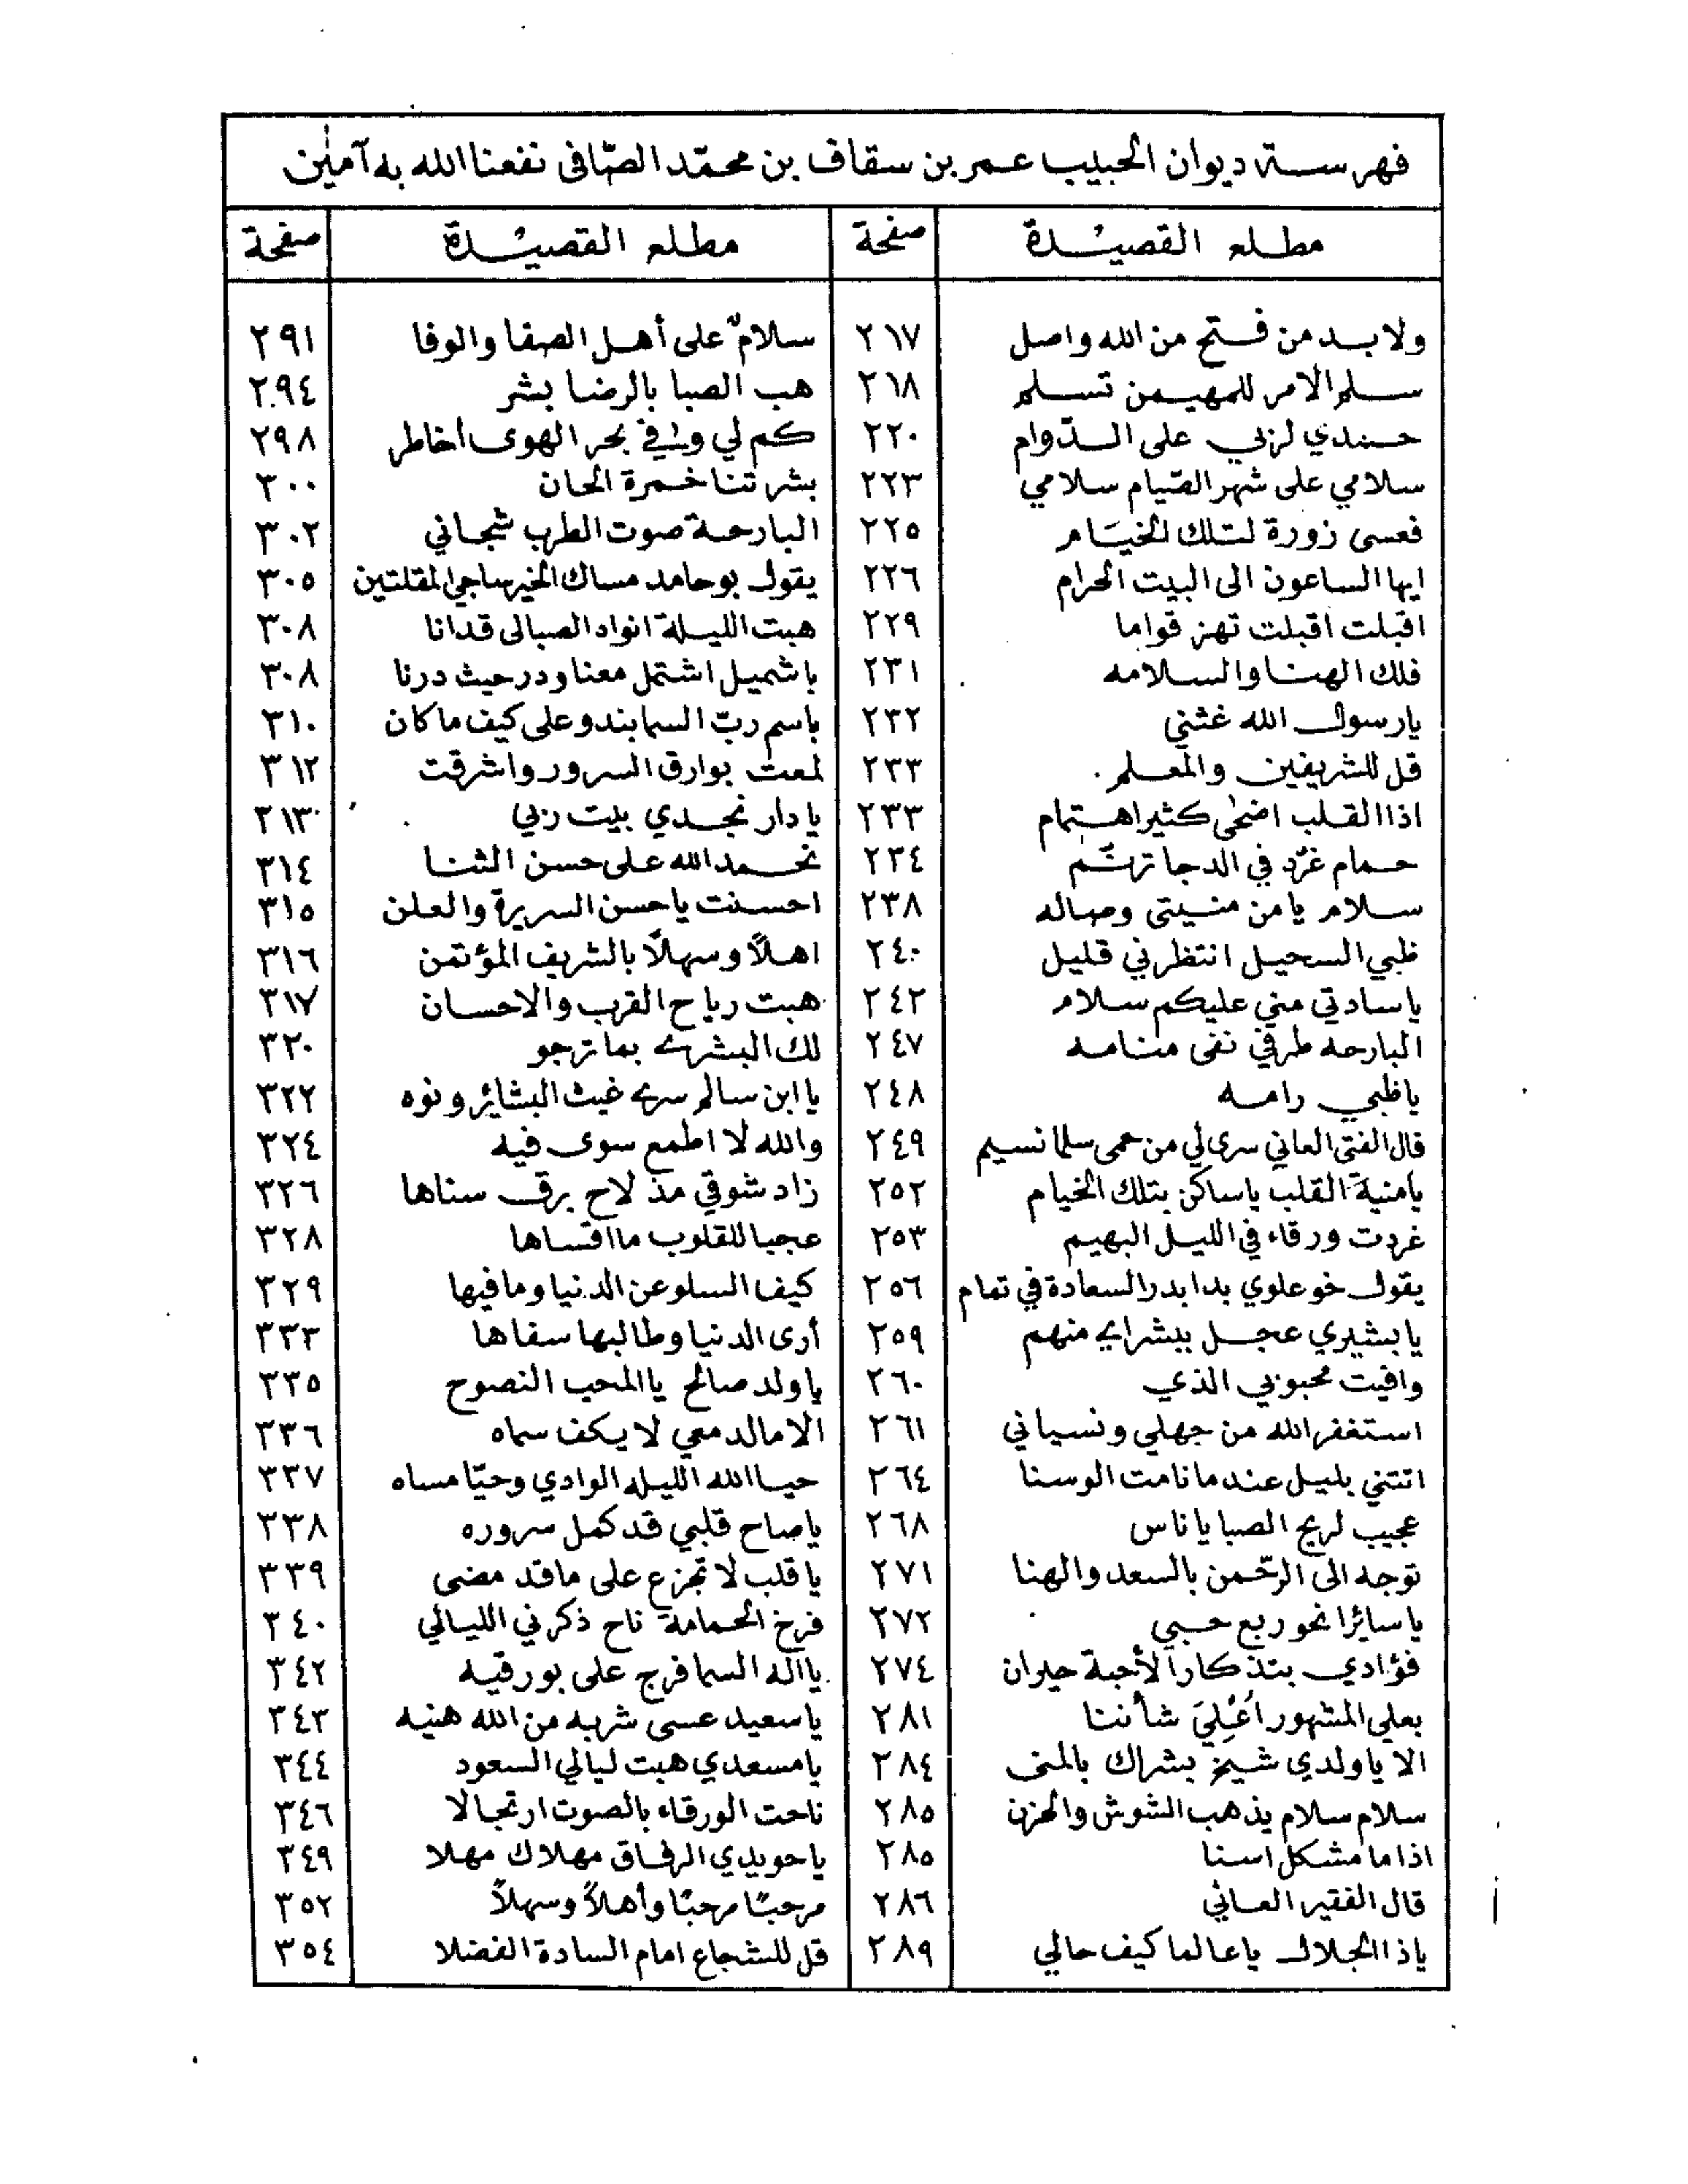 فهرسة ديوان الحبيب عمر بن سقاف بن محمّد الصّافى نفعنا الله به آمين
مطلع القصيدة صفحة مطلع القصيدة صفحة
ولا بد من فتح من الله واصل ٢١٧ سلامٌ على أهل الصفا والوفا ٢٩١
سلم الامر للمهيمن تسلم ٢١٨ هب الصبا بالرضا بشر ٢٩٤
حمدي لربي على الدّوام ٢٢٠ كم لي وانا في بحر الهوى أخاطر ٢٩٨
سلامي على شهر الصّيام سلامي ٢٢٣ بشرتنا خمرة الحان ٣٠٠
فعسى زورة لتلك الخيَام ٢٢٥ البارحة صوت الطرب شجاني ٣٠٢
ايها الساعون الى البيت الحرام ٢٢٦ يقول بوحامد مساك الخير ساجي المقلتين ٣٠٥
اقبلت اقبلت تهز قواما ٢٢٩ هبت الليلة انواد الصبا لى قدانا ٣٠٨
فلك الهنا والسلامه ٢٣١ باشميل اشتمل معنا ودر حيث درنا ٣٠٨
يارسول الله غثني ٢٣٢ باسم ربّ السما بندو على كيف ما كان ٣١٠
قل للشريفين والمعلم ٢٣٣ لمعت بوارق السرور واشرقت ٣١٢
اذا القلب اضحى كثير اهتمام ٢٣٣ يا دار نجدي بيت ربي ٣١٣
حمام غرّد في الدجا ترنّم ٢٣٤ نحمد الله على حسن الثنا ٣١٤
سلام يا من منيتى وصاله ٢٣٨ احسنت ياحسن السريرة والعلن ٣١٥
ظبي السحيل انتظرني قليل ٢٤٠ اهلاً وسهلًا بالشريف المؤتمن ٣١٦
ياسادتي مني عليكم سلام ٢٤٢ هبت رياح القرب والاحسان ٣١٧
البارحه طرفي نفى منامه ٢٤٧ لك البشرى بما ترجو ٣٢٠
ياظبي رامه ٢٤٨ يا ابن سالم سرى غيث البشائر ونوه ٣٢٢
قال الفتى العاني سرى لي من حمى سلما نسيم ٢٤٩ والله لا اطمع سوى فيه ٣٢٤
يامنية القلب ياساكن بتلك الخيام ٢٥٢ زاد شوقي مذ لاح برق سناها ٣٢٦
غردت ورقاء في الليل البهيم ٢٥٣ عجبا للقلوب ما اقساها ٣٢٨
يقول خو علوي بدا بدر السعادة في تمام ٢٥٦ كيف السلو عن الدنيا وما فيها ٣٢٩
يا بشيري عجل ببشراي منهم ٢٥٩ أرى الدنيا وطالبها سفاها ٣٣٣
وافيت محبوبي الذي ٢٦٠ ياولد صالح يا المحب النصوح ٣٣٥
استغفر الله من جهلي ونسياني ٢٦١ الا ما لدمعي لا يكف سماه ٣٣٦
اتتني بليل عندما نامت الوسنا ٢٦٤ حيا الله الليله الوادي وحيّا مساه ٣٣٧
عجيب لريح الصبا ياناس ٢٦٨ ياصاح قلبي قد كمل سروره ٣٣٨
توجه الى الرحّمن بالسعد والهنا ٢٧١ يا قلب لا تجزع على ما قد مضى ٣٣٩
يا سائرا نحو ربع حبي ٢٧٢ فرخ الحمامة ناح ذكرني الليالي ٣٤٠
فؤادي بتذكار الأحبة حيران ٢٧٤ يااله السما فرج على بورقيه ٣٤٢
بعلي المشهور أُعْلِيَ شأننا ٢٨١ ياسعيد عسى شربه من الله هنيه ٣٤٣
الا ياولدي شيخ بشراك بالمنى ٢٨٤ يامسعدي هبت ليالي السعود ٣٤٤
سلام سلام يذهب الشوش والحزن ٢٨٥ ناحت الورقاء بالصوت ارتجالا ٣٤٦
اذا ما مشكل اسنا ٢٨٥ يا حويدي الرفاق مهلاك مهلا ٣٤٩
قال الفقير العاني ٢٨٦ مرحبًا مرحبًا وأهلاً وسهلاً ٣٥٢
ياذا الجلال ياعالما كيف حالي ٢٨٩ قل للشجاع امام السادة الفضلا ٣٥٤